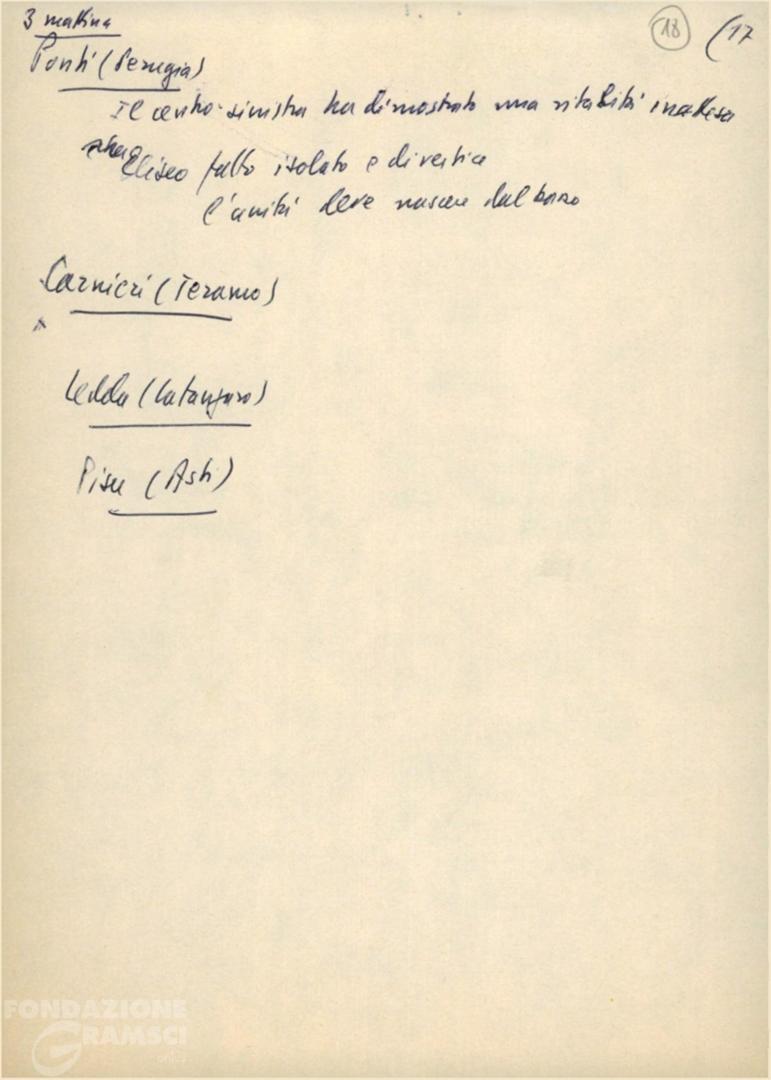 3 mattina
18
(17
Ponti (Perugia)
Il centro-sinistra ha dimostrato una vitalità inattesa
Eliseo fatto isolato e di vertice
l'unità deve nascere dal basso
Carnieri (Teramo)
Ledda (Catanzaro)
Pisu (Asti)
FONDAZIONE
GRAMSCI
onlus